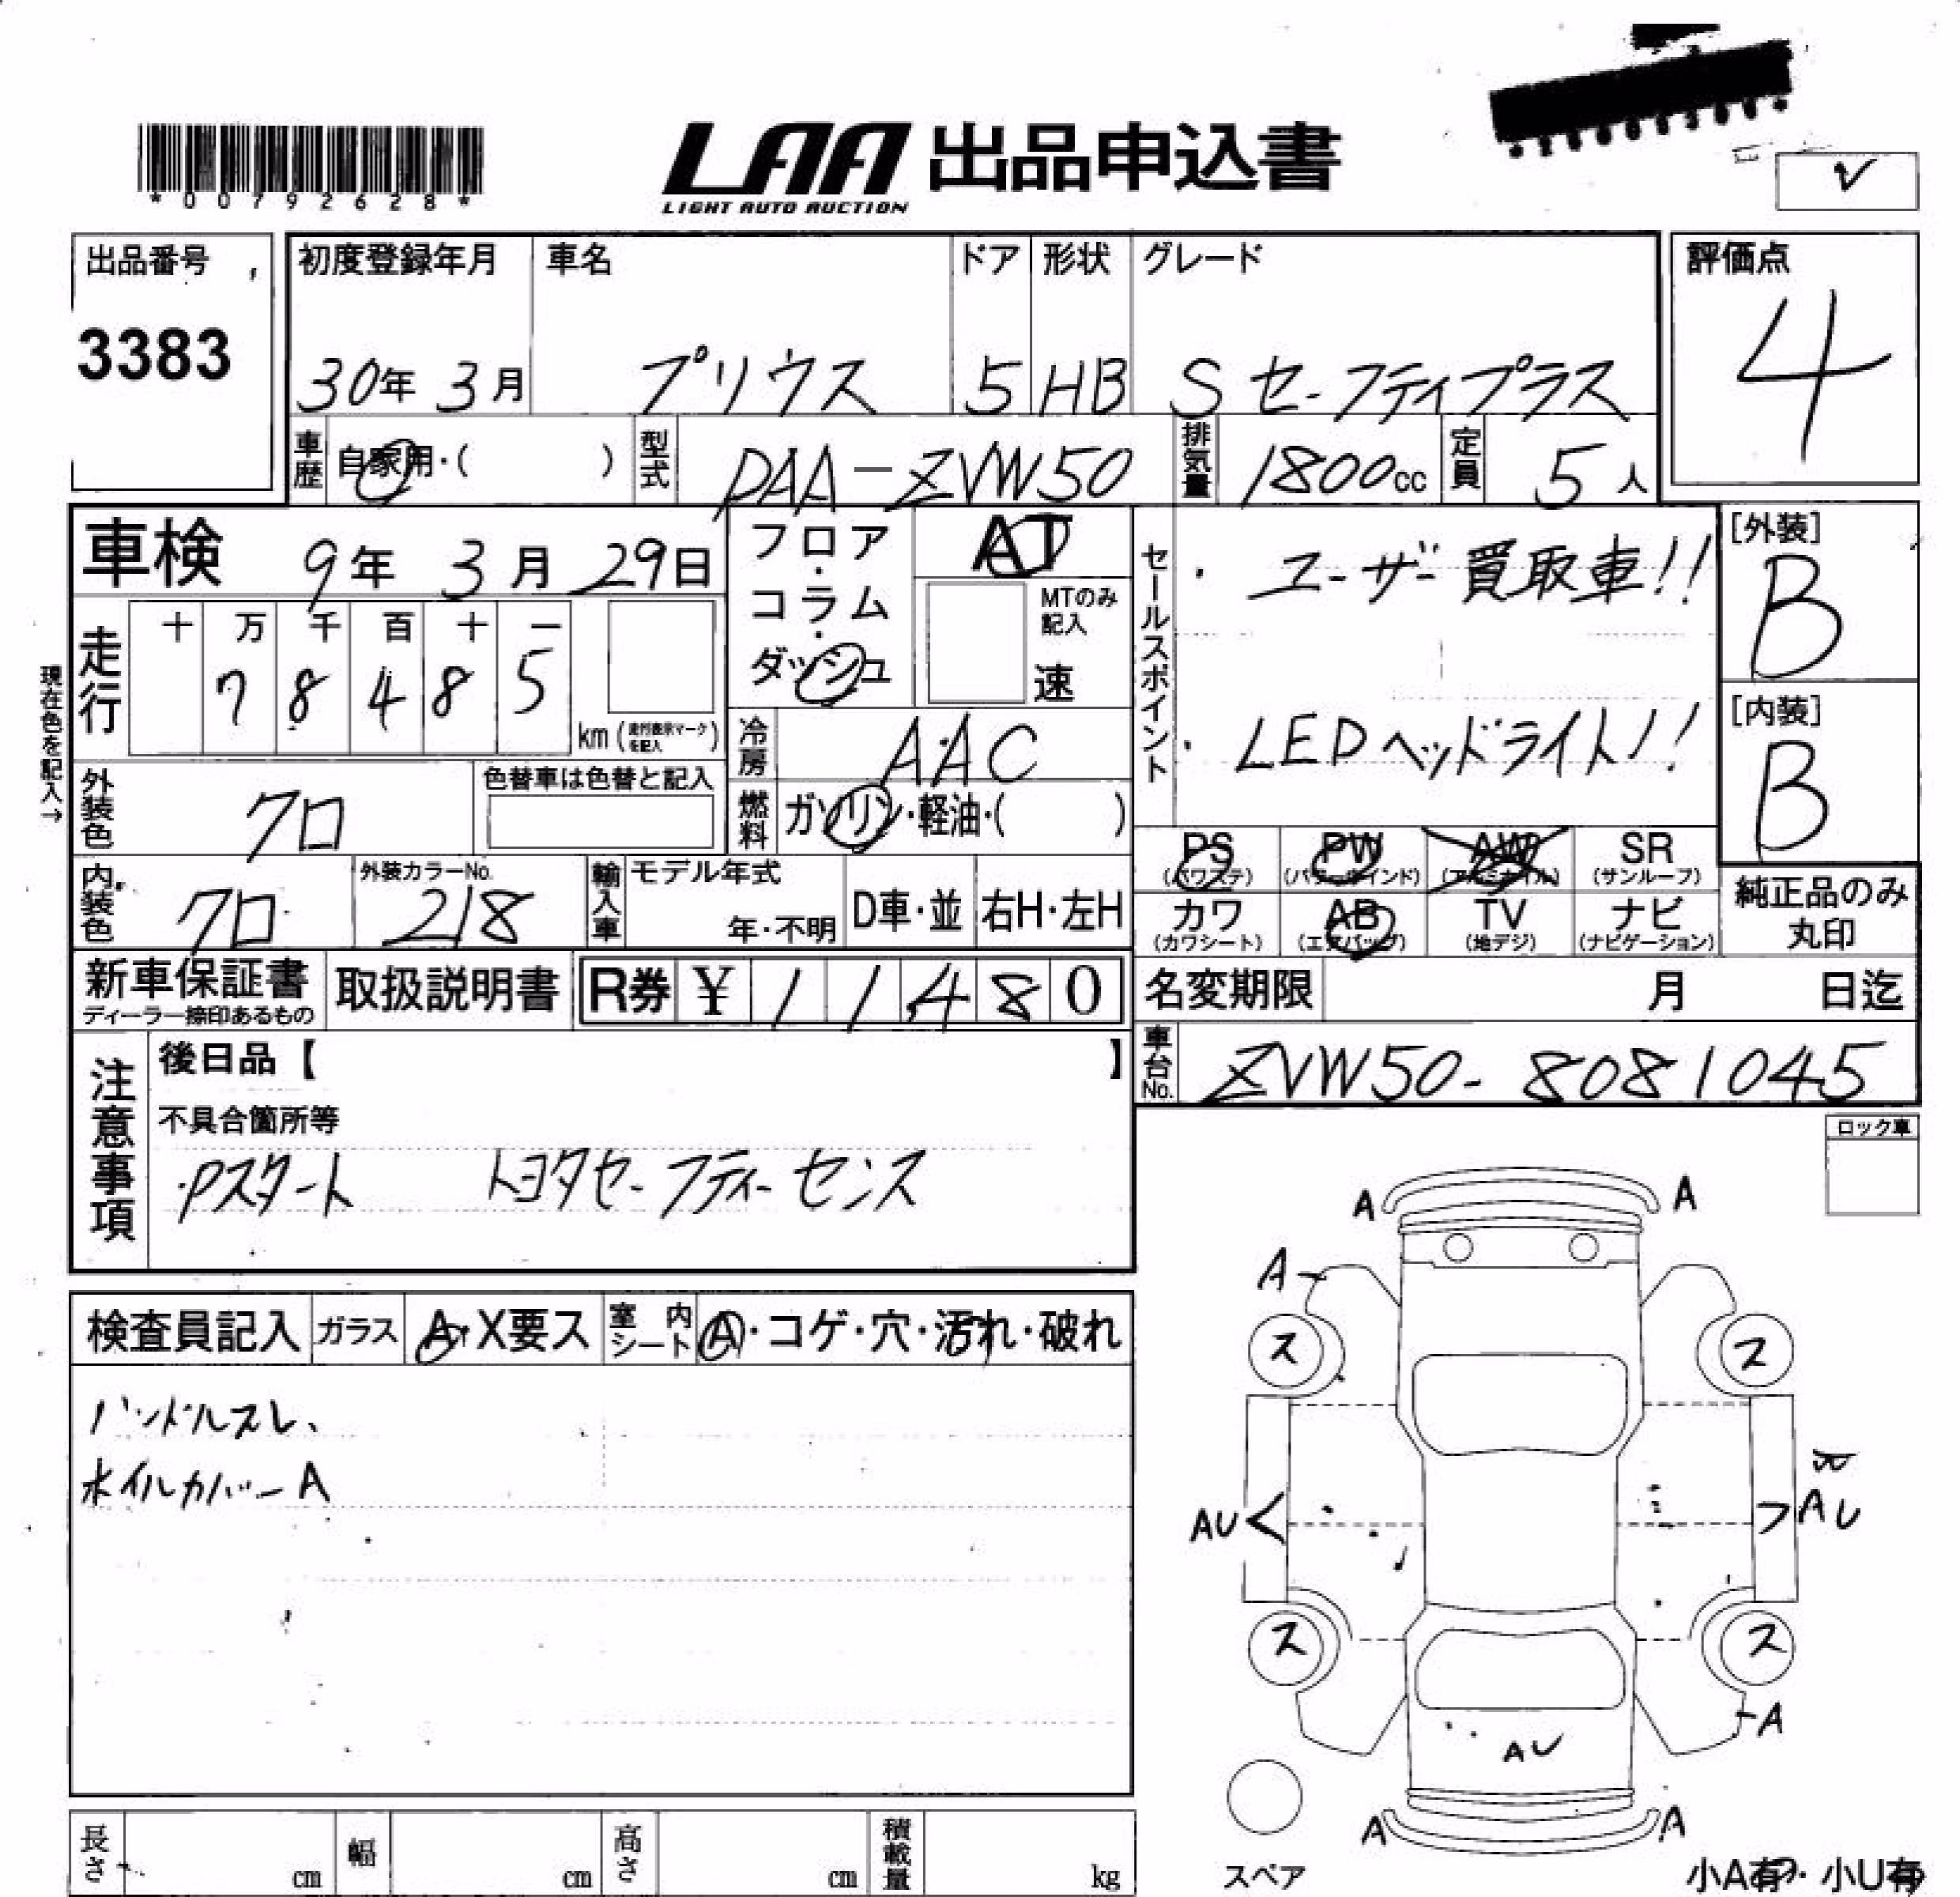 *00792628*
LAA 出品申込書
LIGHT AUTO AUCTION
出品番号
3383
初度登録年月 車名 ドア 形状 グレード
30年 3月 プリウス 5 HB S セーフティプラス
評価点
4
車歴 自家用・( ) 型式 DAA-ZVW50 排気量 1800cc 定員 5人
車検 9年 3月 29日
フロア・コラム・ダッシュ
AT
MTのみ記入
速
セールスポイント
・ユーザー買取車!!
・LEDヘッドライト!!
[外装]
B
[内装]
B
現在色を記入→
走行 十 万 千 百 十 一
7 8 4 8 5
km(走行表示マークを記入)
冷房 AAC
外装色 クロ
色替車は色替と記入
燃料 ガソリン・軽油・( )
内装色 クロ
外装カラーNo.
218
輸入車 モデル年式
年・不明 D車・並 右H・左H
PS (パワステ) PW (パワーウインド) AW (アルミホイル) SR (サンルーフ)
カワ (カワシート) AB (エアバッグ) TV (地デジ) ナビ (ナビゲーション)
純正品のみ丸印
新車保証書
ディーラー捺印あるもの
取扱説明書 R券 ¥ 1 1 4 8 0
名変期限 月 日迄
車台No. ZVW50-8081045
注意事項
後日品【 】
不具合箇所等
・Pスタート トヨタセーフティーセンス
ロック車
検査員記入 ガラス A・X要ス 室内シート A・コゲ・穴・汚れ・破れ
ハンドルスレ、
ホイルカバーA
A A
A
ス ス
AU AU
ス ス
A
AU
A A
スペア
小A有・小U有
長さ cm 幅 cm 高さ cm 積載量 kg